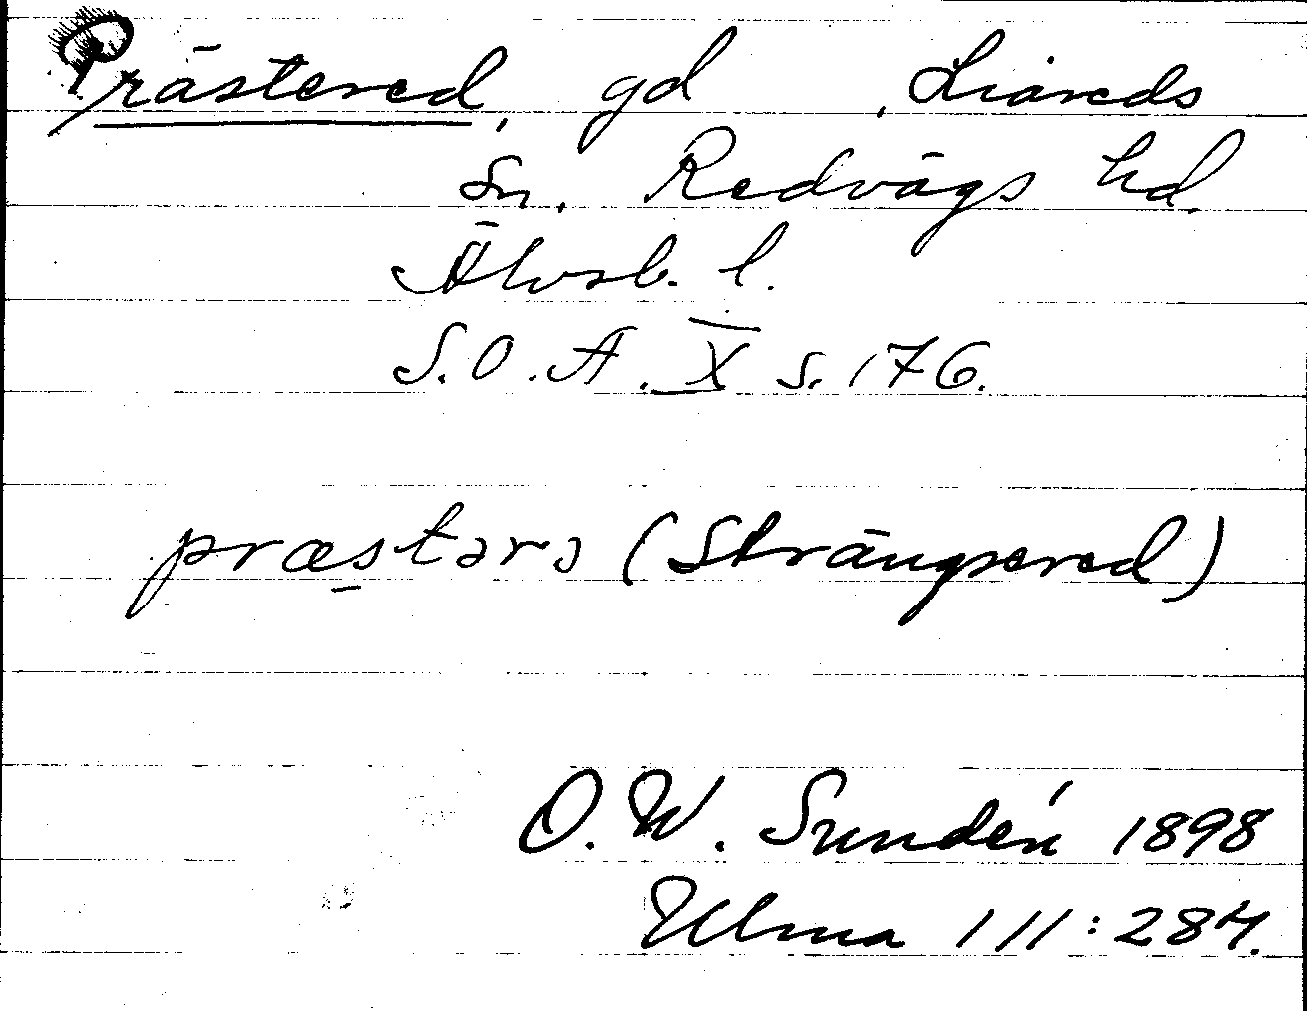 Prästered, gd, Liareds
sn, Redvägs hd.
Älvsb. l.
S.O.A. X s. 176.
præstərə (Strängsered)
O.W. Sundén 1898
Ulma 111:284.